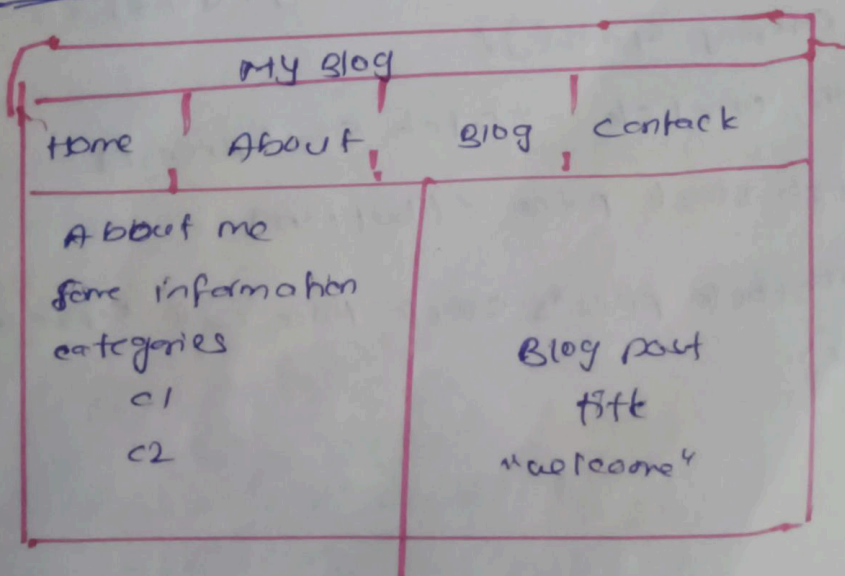 My Blog
Home About Blog Contack
About me
some information
categories
C1
C2
Blog post
title
"welcome"